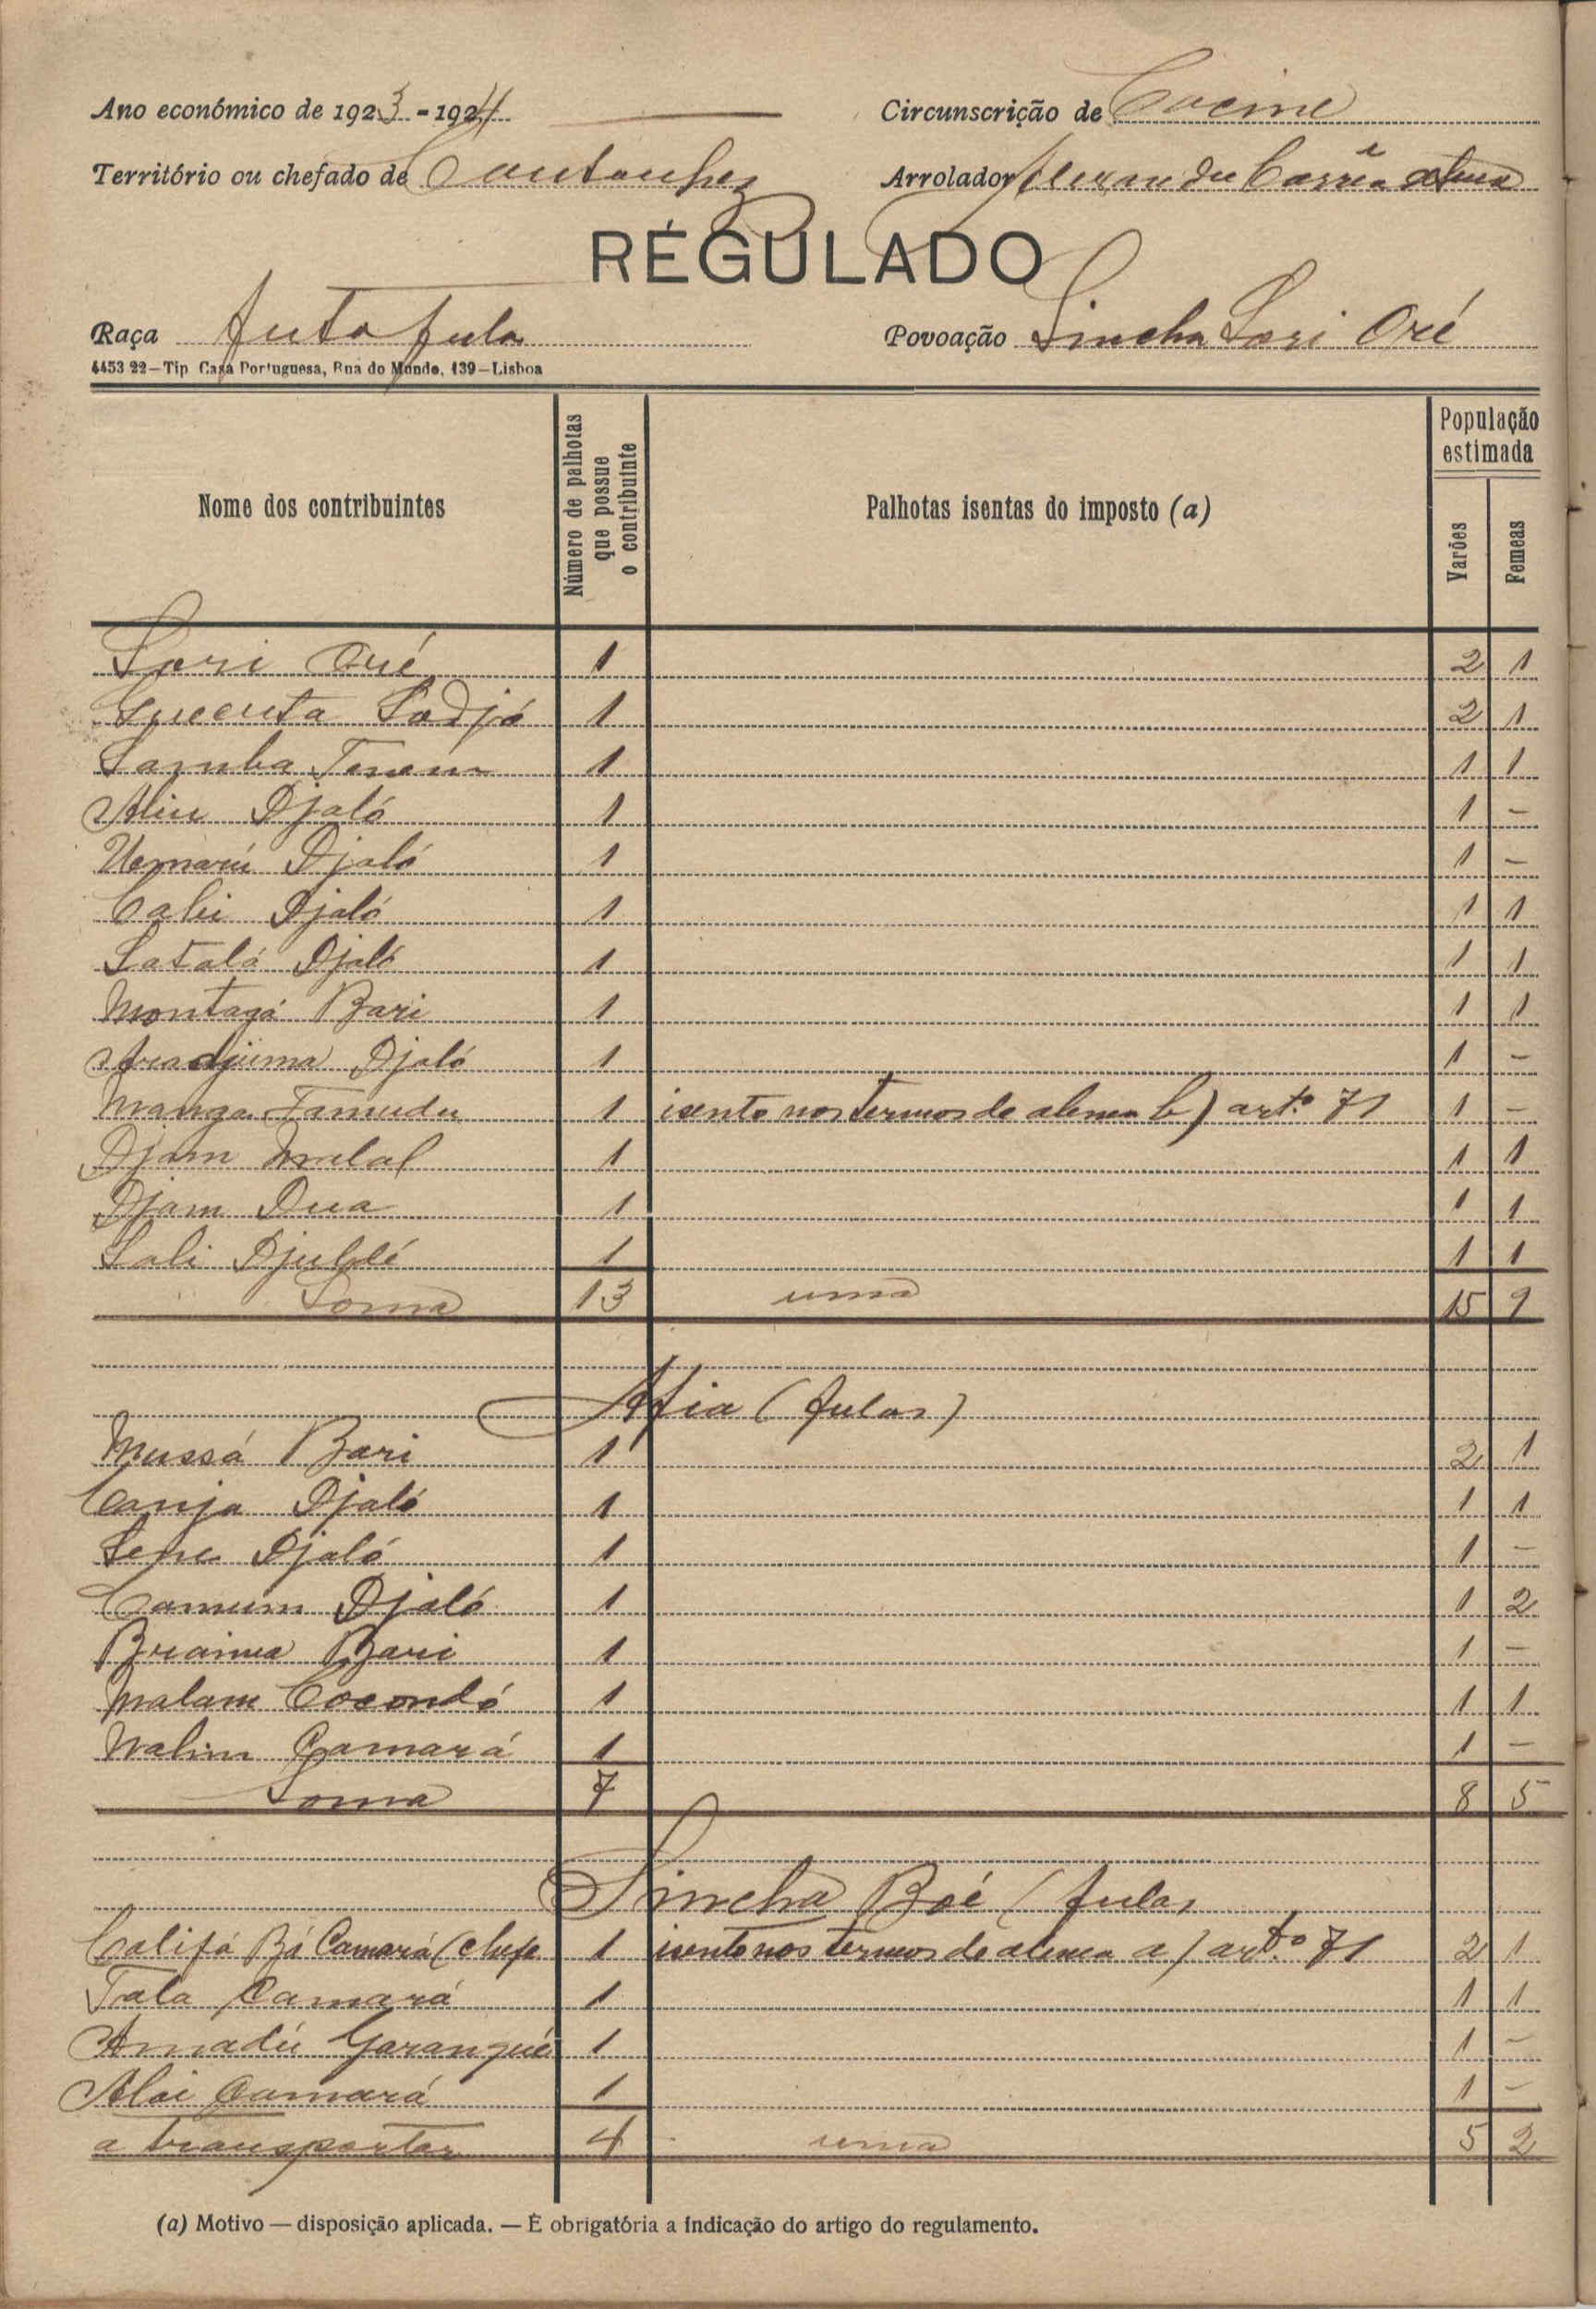 Ano económico de 1923-1924 Circunscrição de Cacine
Território ou chefado de Cantanhez Arrolador Alexandre Corrêa
RÉGULADO
Raça futa fula Povoação Sincha Sori Oré
4453 22—Tip Casa Portuguesa, Rua do Mundo, 139—Lisboa
Nome dos contribuintes Número de palhotas que possue o contribuinte Palhotas isentas do imposto (a) População estimada Varões Femeas
Sori Oré 1 2 1
Sadjó 1 2 1
Samba 1 1 1
Aliu Djaló 1 1 -
Djaló 1 1 -
Djaló 1 1 1
Satalá Djaló 1 1 1
Montagá Bari 1 1 1
Djaló 1 1 -
Manga Tamudu 1 isento nos termos de alinea b) artº 71 1 -
Djam Malal 1 1 1
Djam Dua 1 1 1
Sali Djubdé 1 1 1
Soma 13 uma 15 9
Afia (fulas)
Mussá Bari 1 2 1
Canja Djaló 1 1 1
Sene Djaló 1 1 -
Camum Djaló 1 1 2
Braima Bari 1 1 -
Malam Cocondó 1 1 1
Camará 1 1 -
Soma 7 8 5
Sincha Boé (fulas
Califá Bá Camará (chefe 1 isento nos termos de alinea a) artº 71 2 1
Tala Camará 1 1 1
Amadú Garangué 1 1 -
Alai Camará 1 1 -
a transportar 4 uma 5 2
(a) Motivo — disposição aplicada. — É obrigatória a indicação do artigo do regulamento.